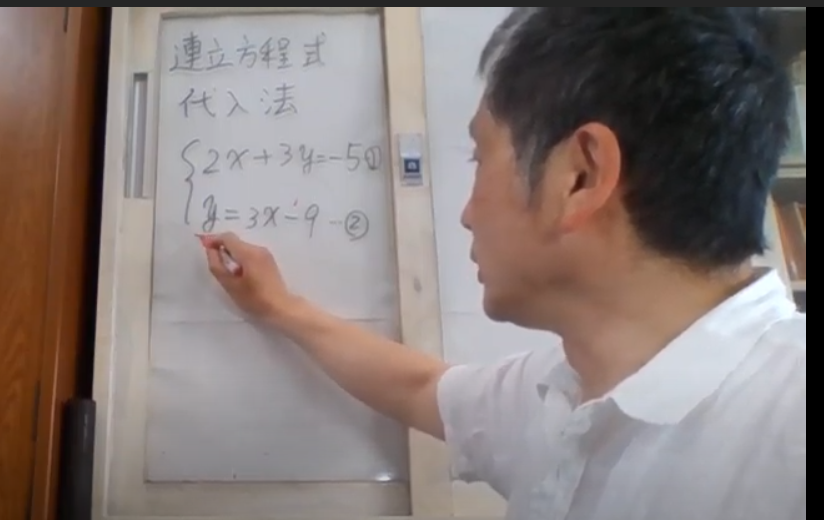 連立方程式
代入法
2x+3y=-5①
y=3x-9-②